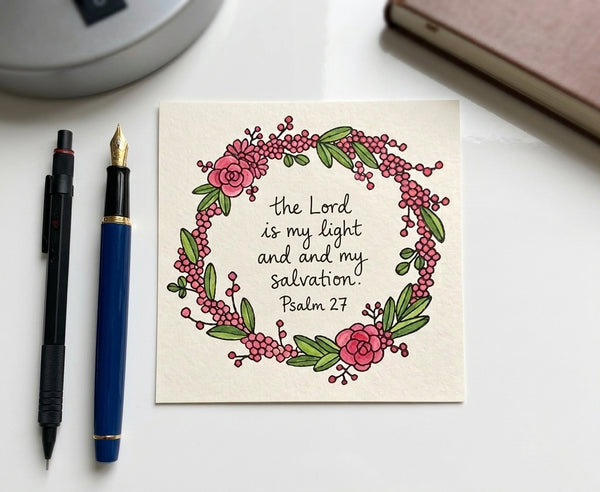 the Lord
is my light
and and my
salvation.
Psalm 27